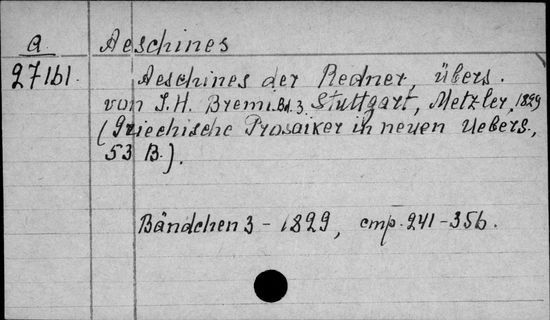 a Aeschines
27161. Aeschines der Redner, übers.
von J. H. Bremi. Bd. 3. Stuttgart, Metzler, 1829
(Griechische Prosaiker in neuen Uebers.,
53 B.).
Bändchen 3 - 1829, cmp. 241-356.